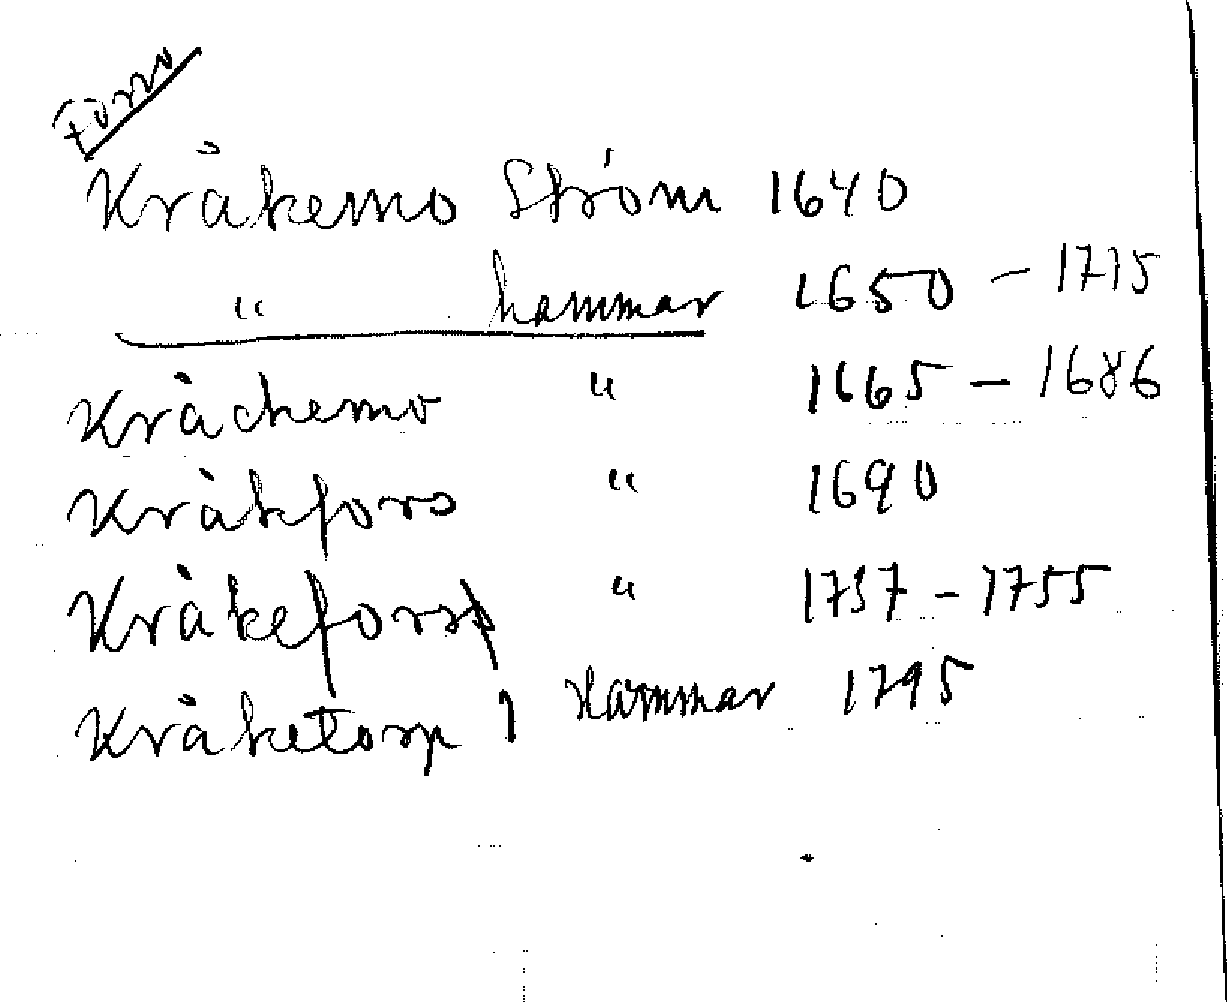 Forso
Kråkemo Ström 1640
" hammar 1650 - 1715
Kråckemo " 1665 - 1686
Kråkfors " 1690
Kråkefors " 1737 - 1755
Kråketorp Hammar 1795